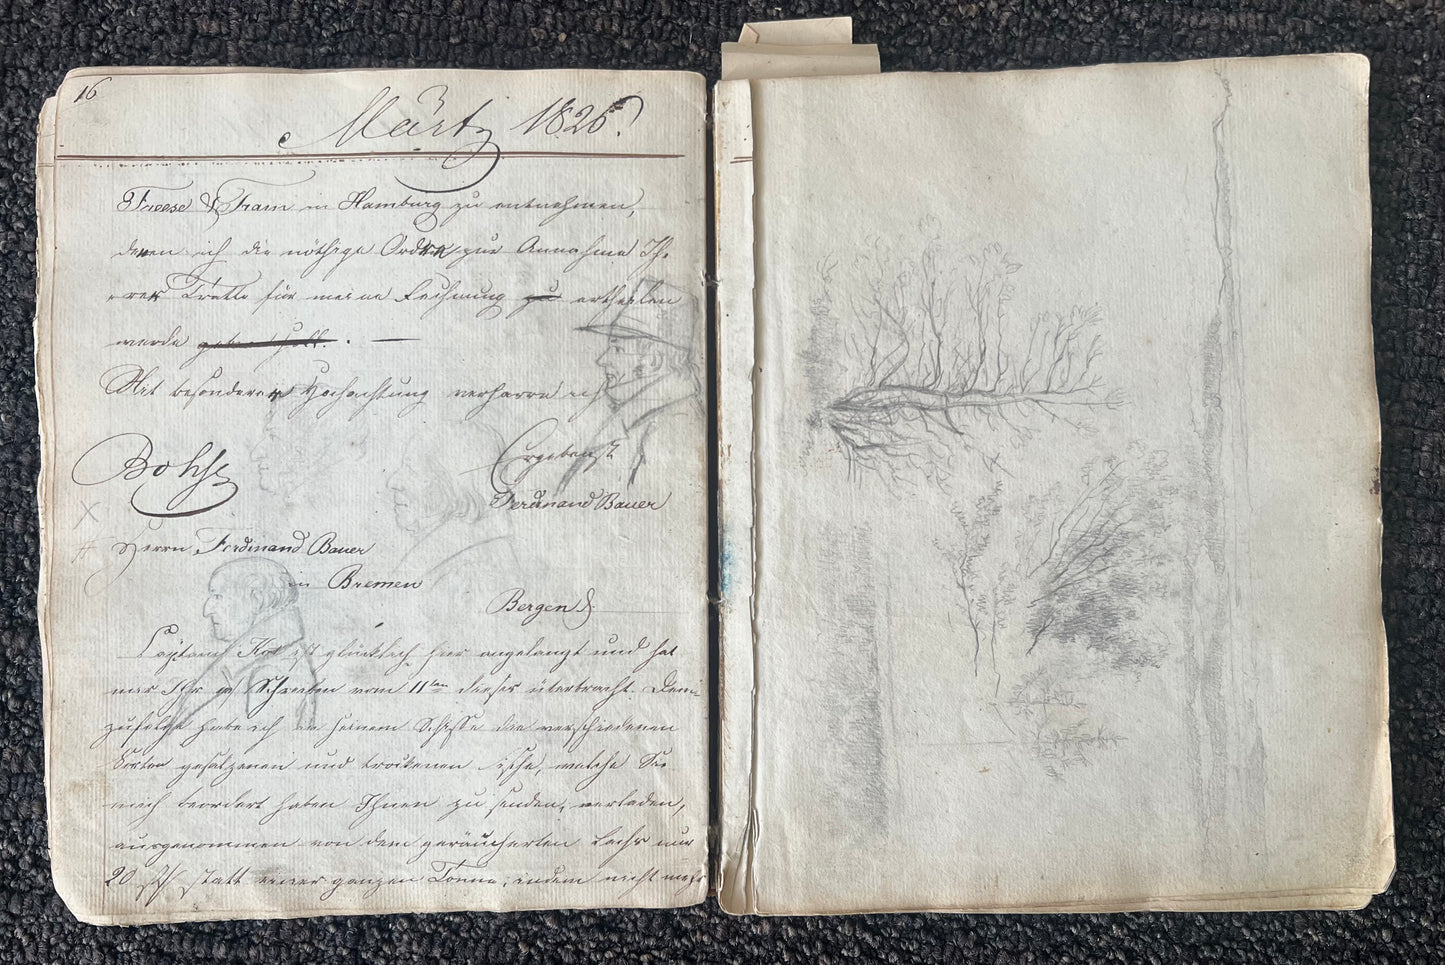 16
Märtz 1826.
Freese & Fram in Hamburg zu entnehmen,
denen ich die nöthige Ordre zur Annahme Ih-
rer Tratte für meine Rechnung zu ertheilen
werde
Mit besonderer Hochachtung verharre ich
Ergebenst
Ferdinand Bauer
Herrn Ferdinand Bauer
in Bremen
Bergen
Capitain ist glücklich hier angelangt und hat
mir Ihr Schreiben vom 11ten dieses überbracht. Dem-
zufolge habe ich in seinem Schiffe die verschiedenen
Sorten gesalzenen und trockenen Fische, welche Sie
mich beordert haben Ihnen zu senden, verladen,
ausgenommen von dem geräucherten Lachs nur
20 statt einer ganzen Tonne, indem nicht mehr